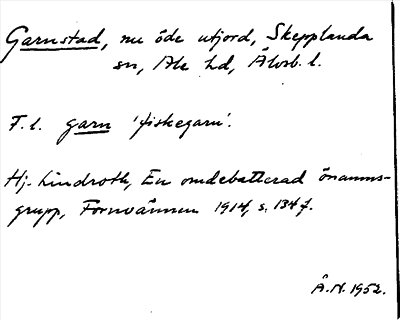 Garnstad, nu öde utjord, Skepplanda
sn, Ale hd, Älvsb. l.
F. l. garn 'fiskegarn'.
Hj. Lindroth, En omdebatterad önamns-
grupp, Fornvännen 1914, s. 134 f.
Å.N. 1952.